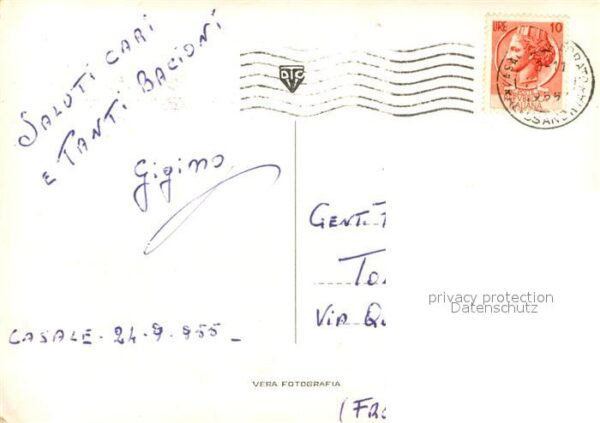 SALUTI CARI
E TANTI BACIONI
Gigino
CASALE - 24-9-955 -
VERA FOTOGRAFIA
LIRE 10
GENT.
TO
VIA QU
(FRO
privacy protection
Datenschutz